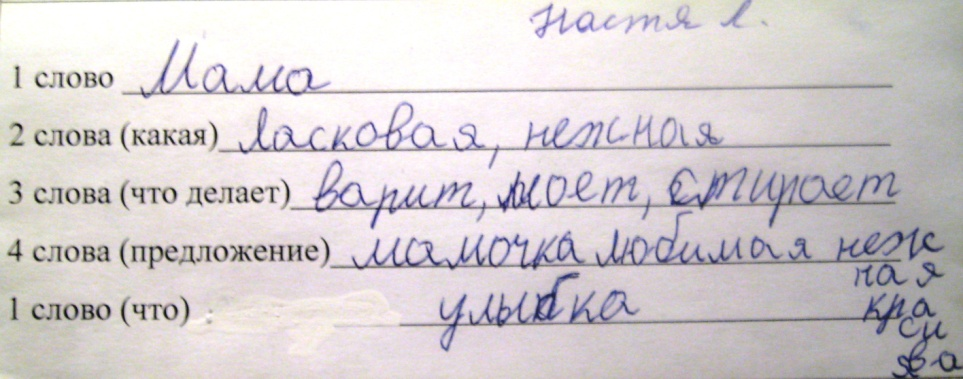 Настя Л.
1 слово Мама
2 слова (какая) Ласковая, нежная
3 слова (что делает) варит, моет, стирает
4 слова (предложение) мамочка любимая неж
ная
кра
си
ва
1 слово (что) улыбка